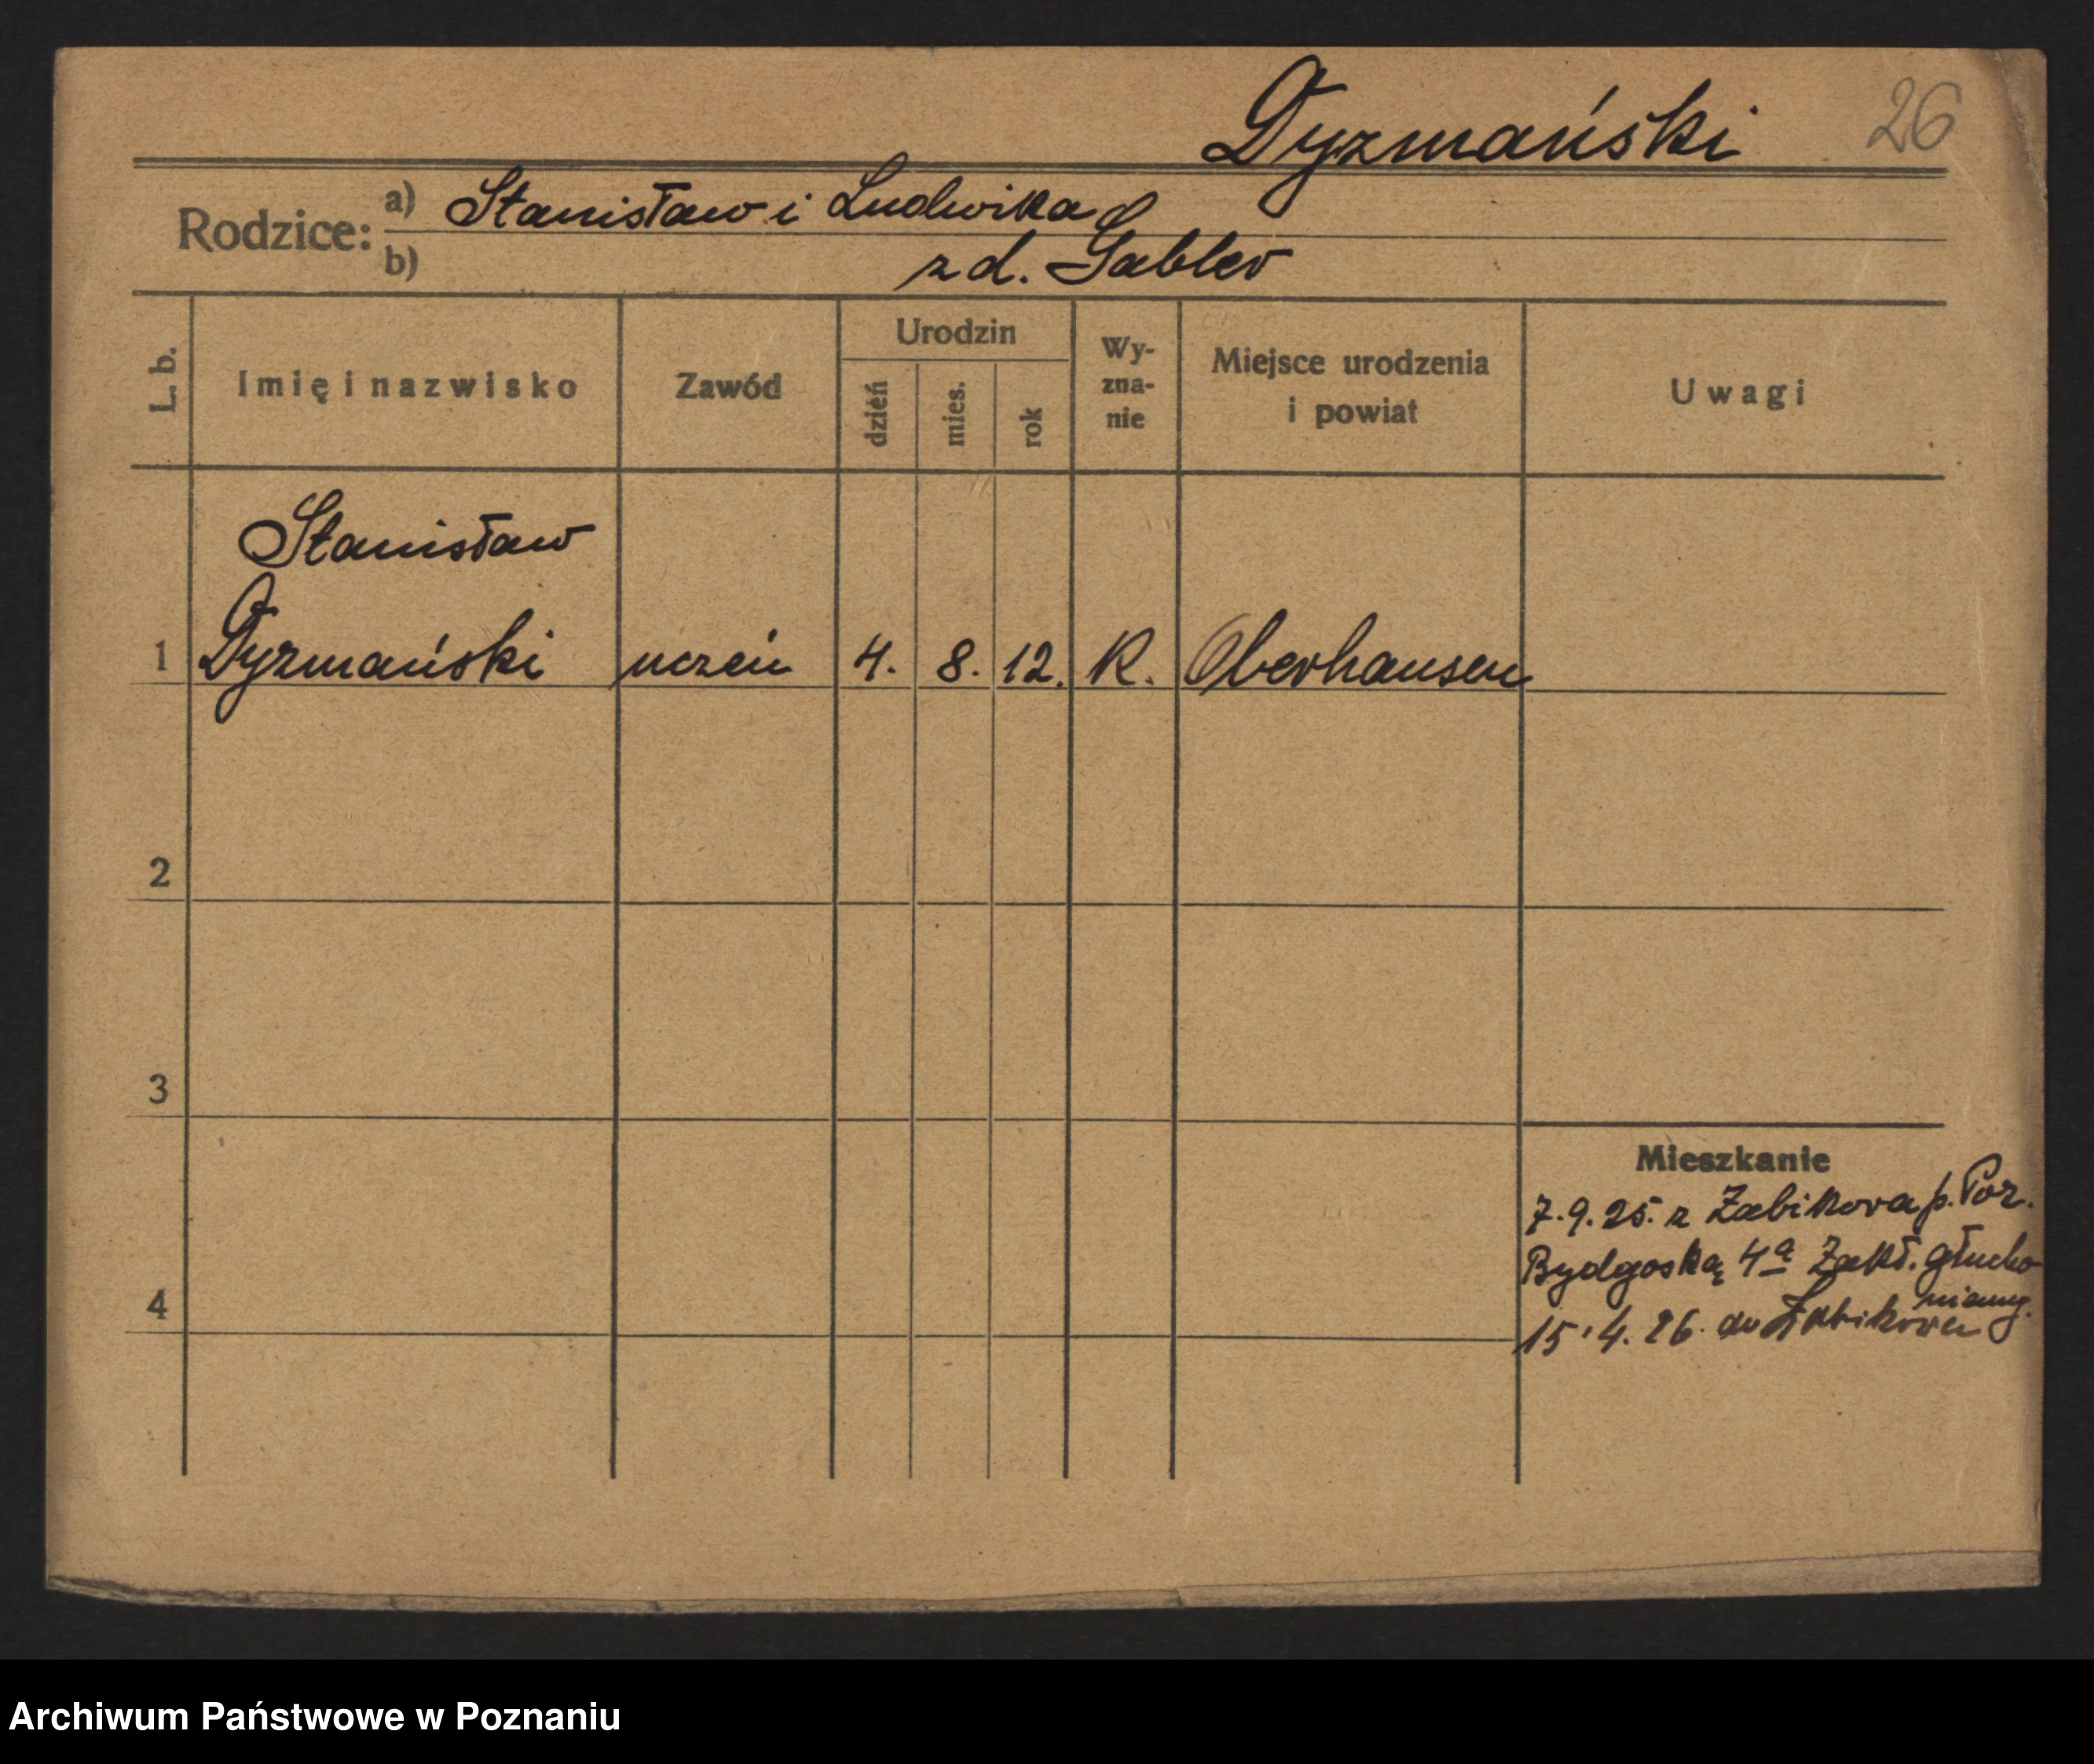 Dyzmański 26
Rodzice: a) Stanisław i Ludwika
b) z d. Gabler
L. b.
Imię i nazwisko
Zawód
Urodzin
dzień
mies.
rok
Wy-
zna-
nie
Miejsce urodzenia
i powiat
Uwagi
Stanisław
1 Dyzmański uczeń 4. 8. 12. K. Oberhausen
2
3
Mieszkanie
7.9.25. z Żabikova p. Poz.
Bydgoską 4a Zakł. głucho
niemy.
4
15.4.26. do Żabikova
Archiwum Państwowe w Poznaniu